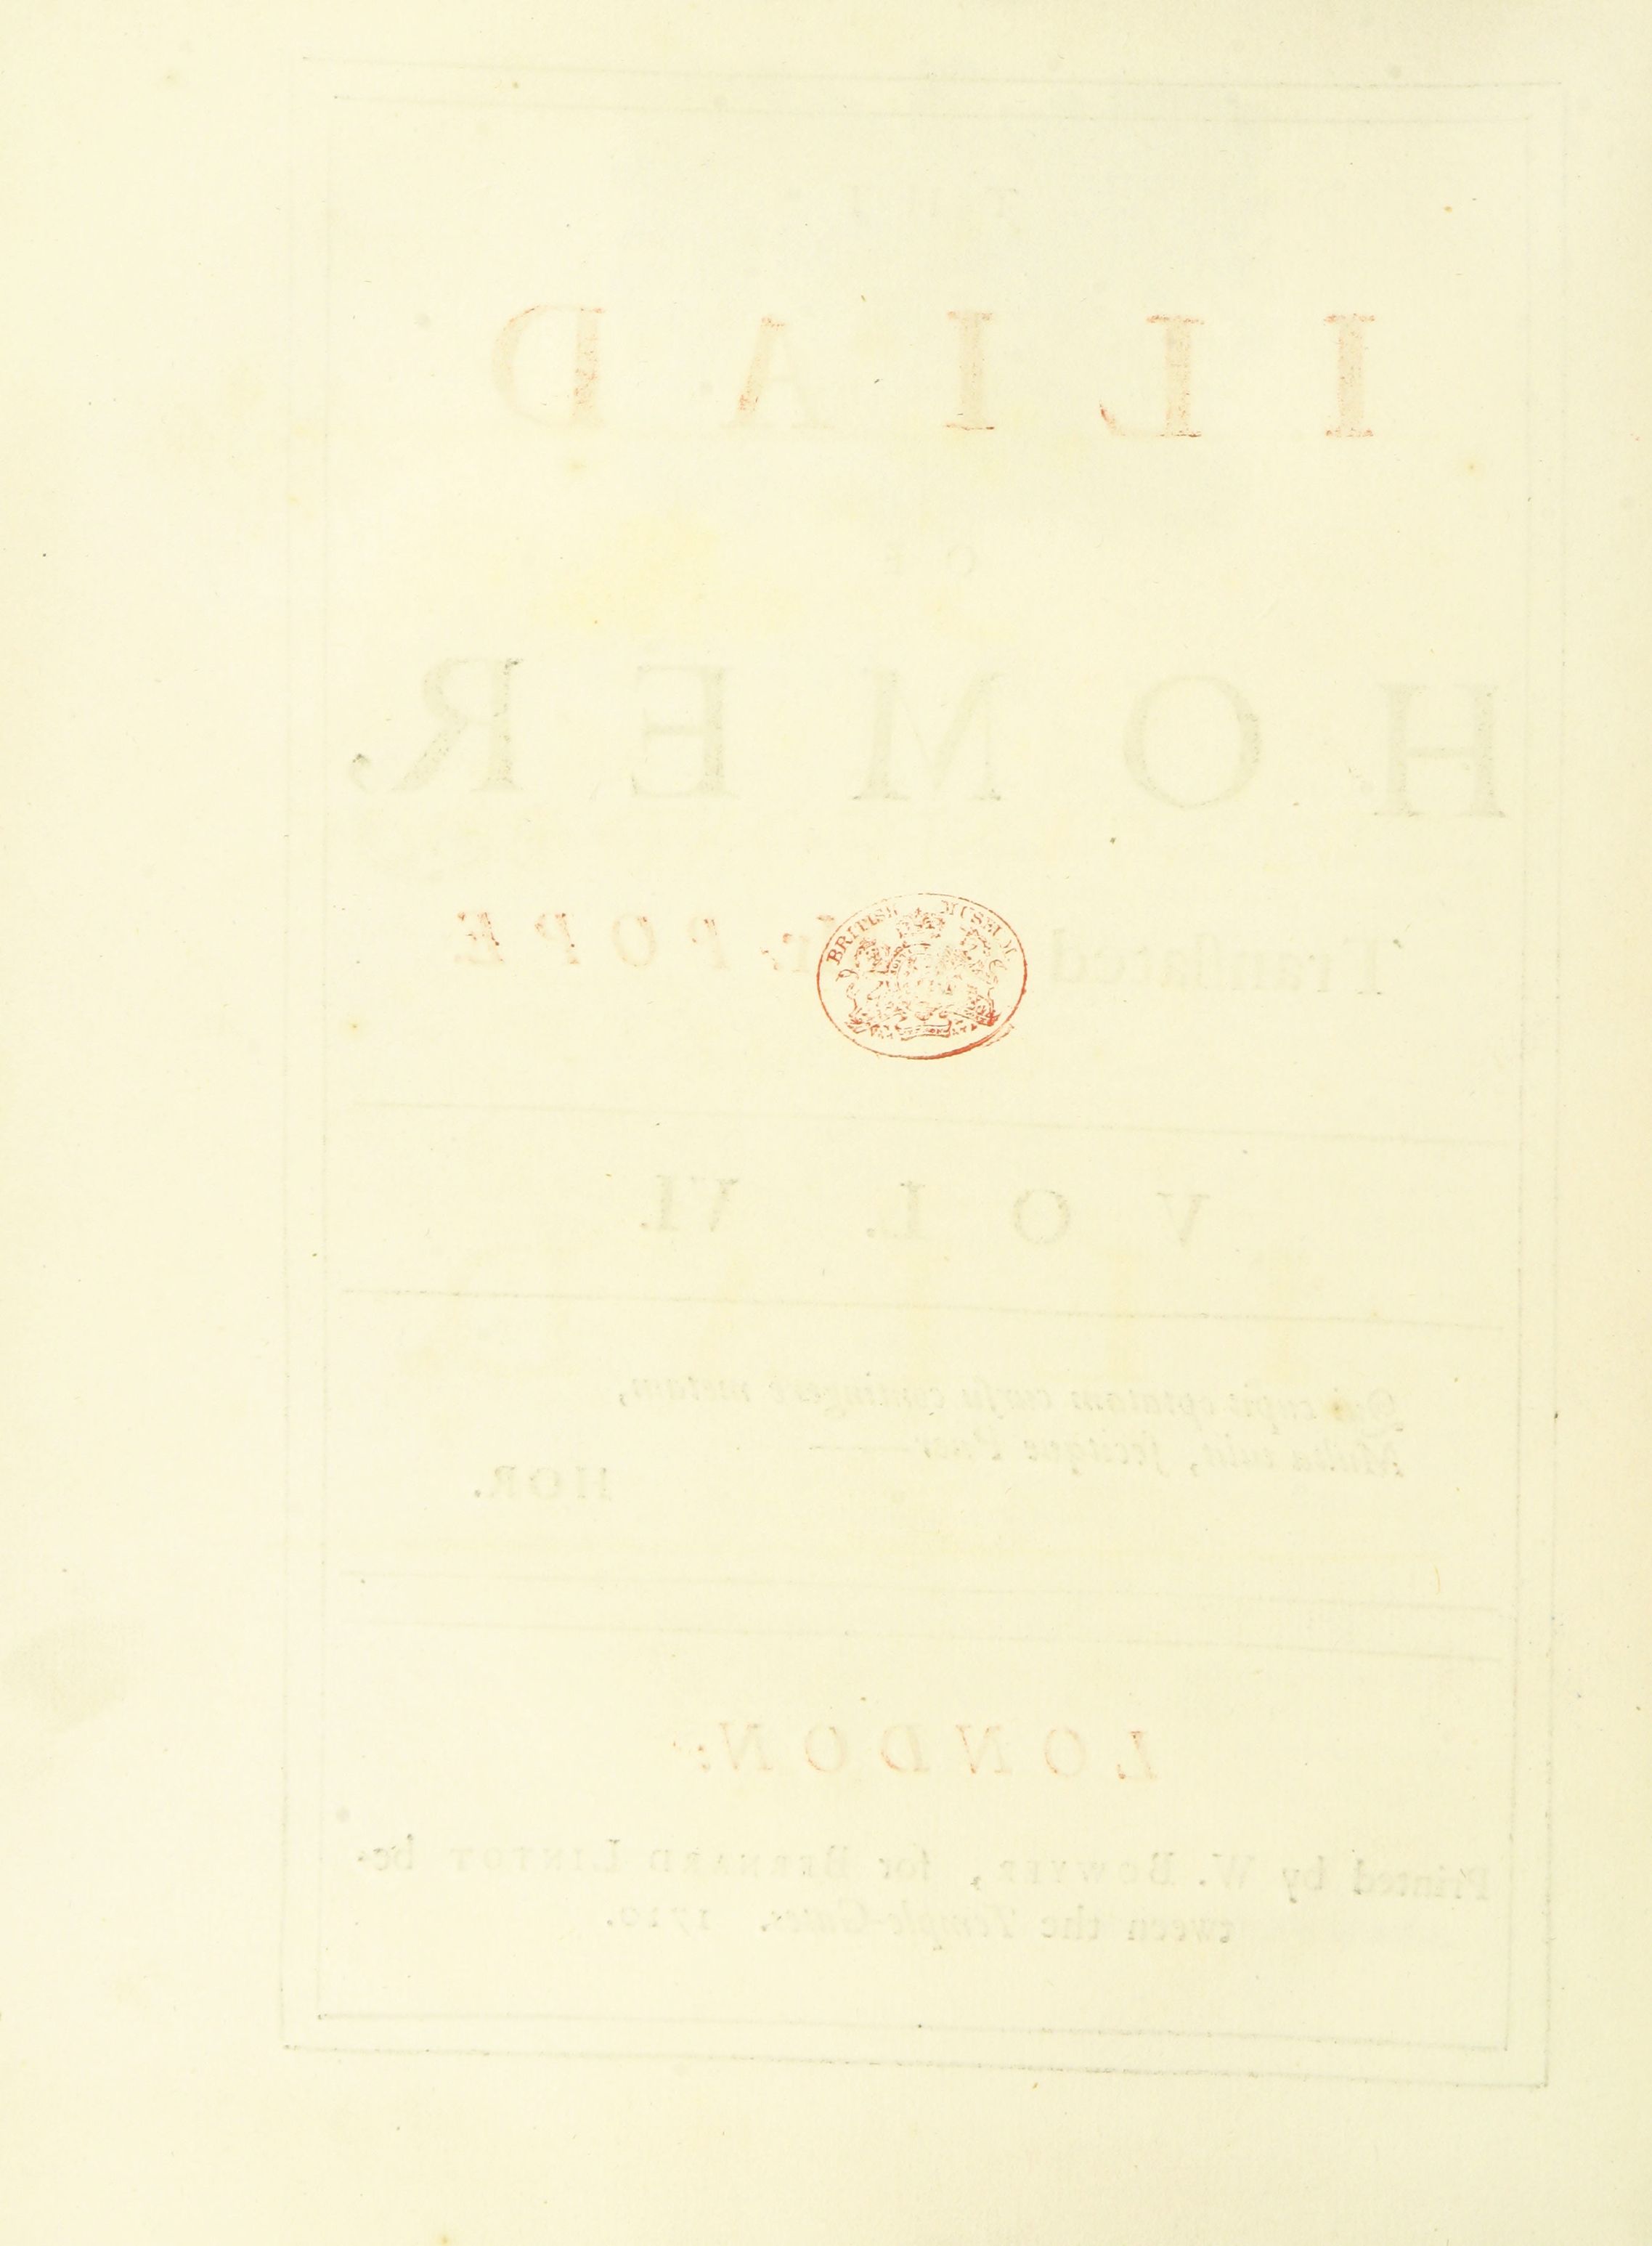 The
ILIAD
OF
HOMER,
Tranſlated Mr. POPE.
BRITISH MUSEUM
VOL. VI.
Qui cupit optatam curſu contingere metam,
Multa tulit, fecitque Puer ——
HOR.
LONDON:
Printed by W. BOWYER, for BERNARD LINTOT be-
tween the Temple-Gates. 1720.